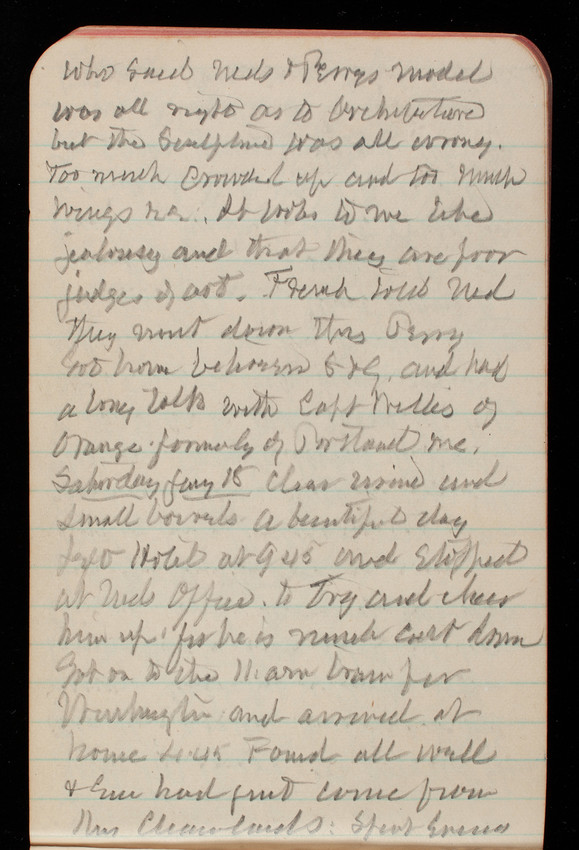 who said Neds & Perrys model
was all right as to Architecture
but the Sculpture was all wrong.
Too much crowded up and too much
wings &c. It looks to me like
jealousy and that they are poor
judges of art. French told Ned
they went down thro Perry
Got home between 5 & 6, and had
a long talk with Capt Willis of
Orange formerly of Portland Me.
Saturday Jany 18 Clear and
small bowels a beautiful day
Hotel at 9 45 and stopped
at Neds Office. to try and cheer
him up, for he is much cast down
Got on to the 11. am train for
Washington and arrived at
home 4.45 Found all well
& Em had just come from
Mrs Cleavelands: Spent Evening